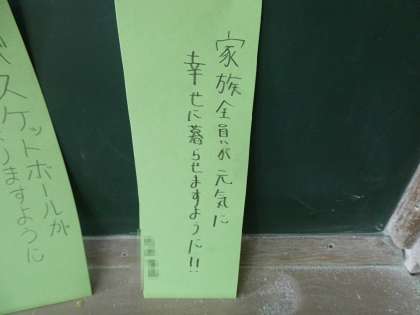 家族全員が元気に
幸せに暮らせますように!!
バスケットボールが
ますように